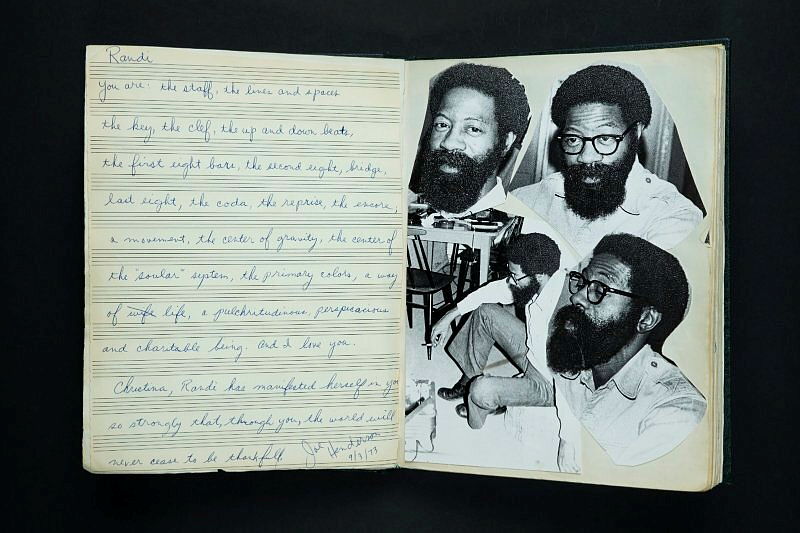 Randi
You are: the staff, the lines and spaces
the key, the clef, the up and down beats,
the first eight bars, the second eight, bridge,
last eight, the coda, the reprise, the encore,
a movement, the center of gravity, the center of
the "soular" system, the primary colors, a way
of wife life, a pulchritudinous, perspicacious
and charitable being. And I love you.
Christina, Randi has manifested herself in you
so strongly that, through you, the world will
never cease to be thankful.
Joe Henderson
9/3/73